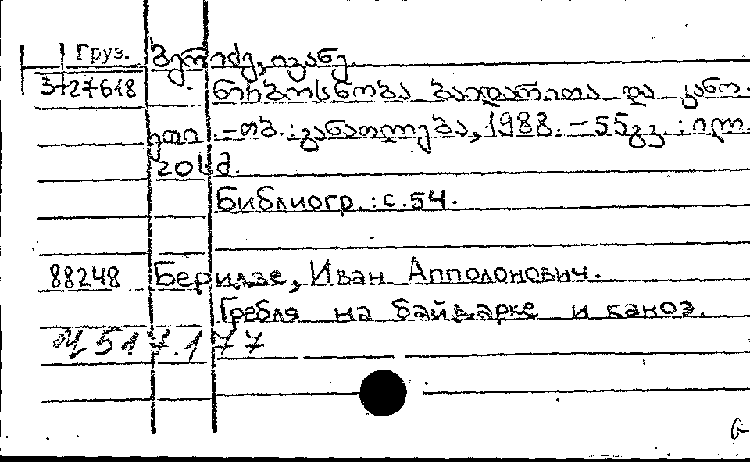 Груз. ბერიძე, ივანე.
3-27618 ნიჩბოსნობა ბაიდარითა და კანო-
ეთი. – თბ. : განათლება, 1988. – 55 გვ. : ილ.
20 სმ.
Библиогр.: с. 54.
88248 Беридзе, Иван Апполонович.
Гребля на байдарке и каноэ.
Ч 517.177